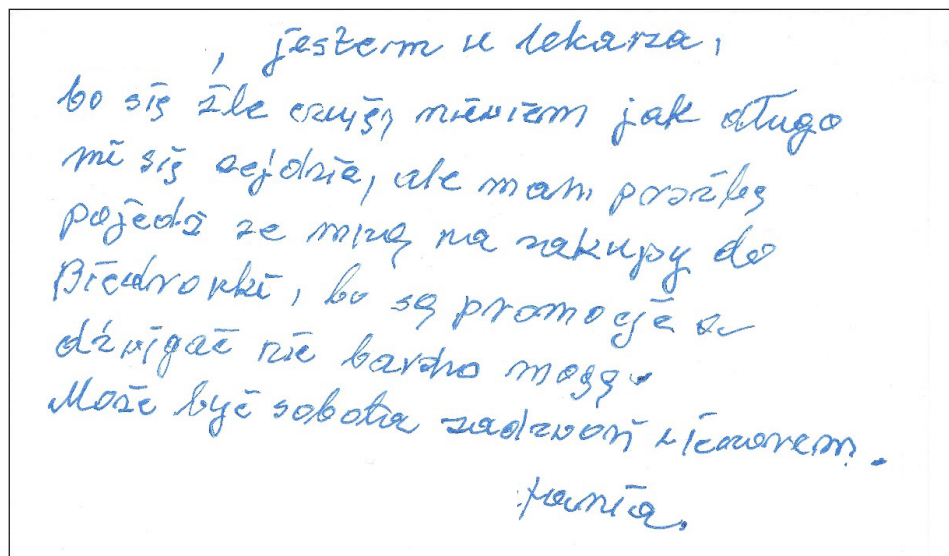 , jestem u lekarza,
bo się źle czuję, niewiem jak długo
mi się zejdzie, ale mam prożbę
pojedź ze mną na zakupy do
Biedronki, bo są promocje a
dźwigać nie bardzo mogę.
Może być sobota zadzwoń wieczorem.
Hania.